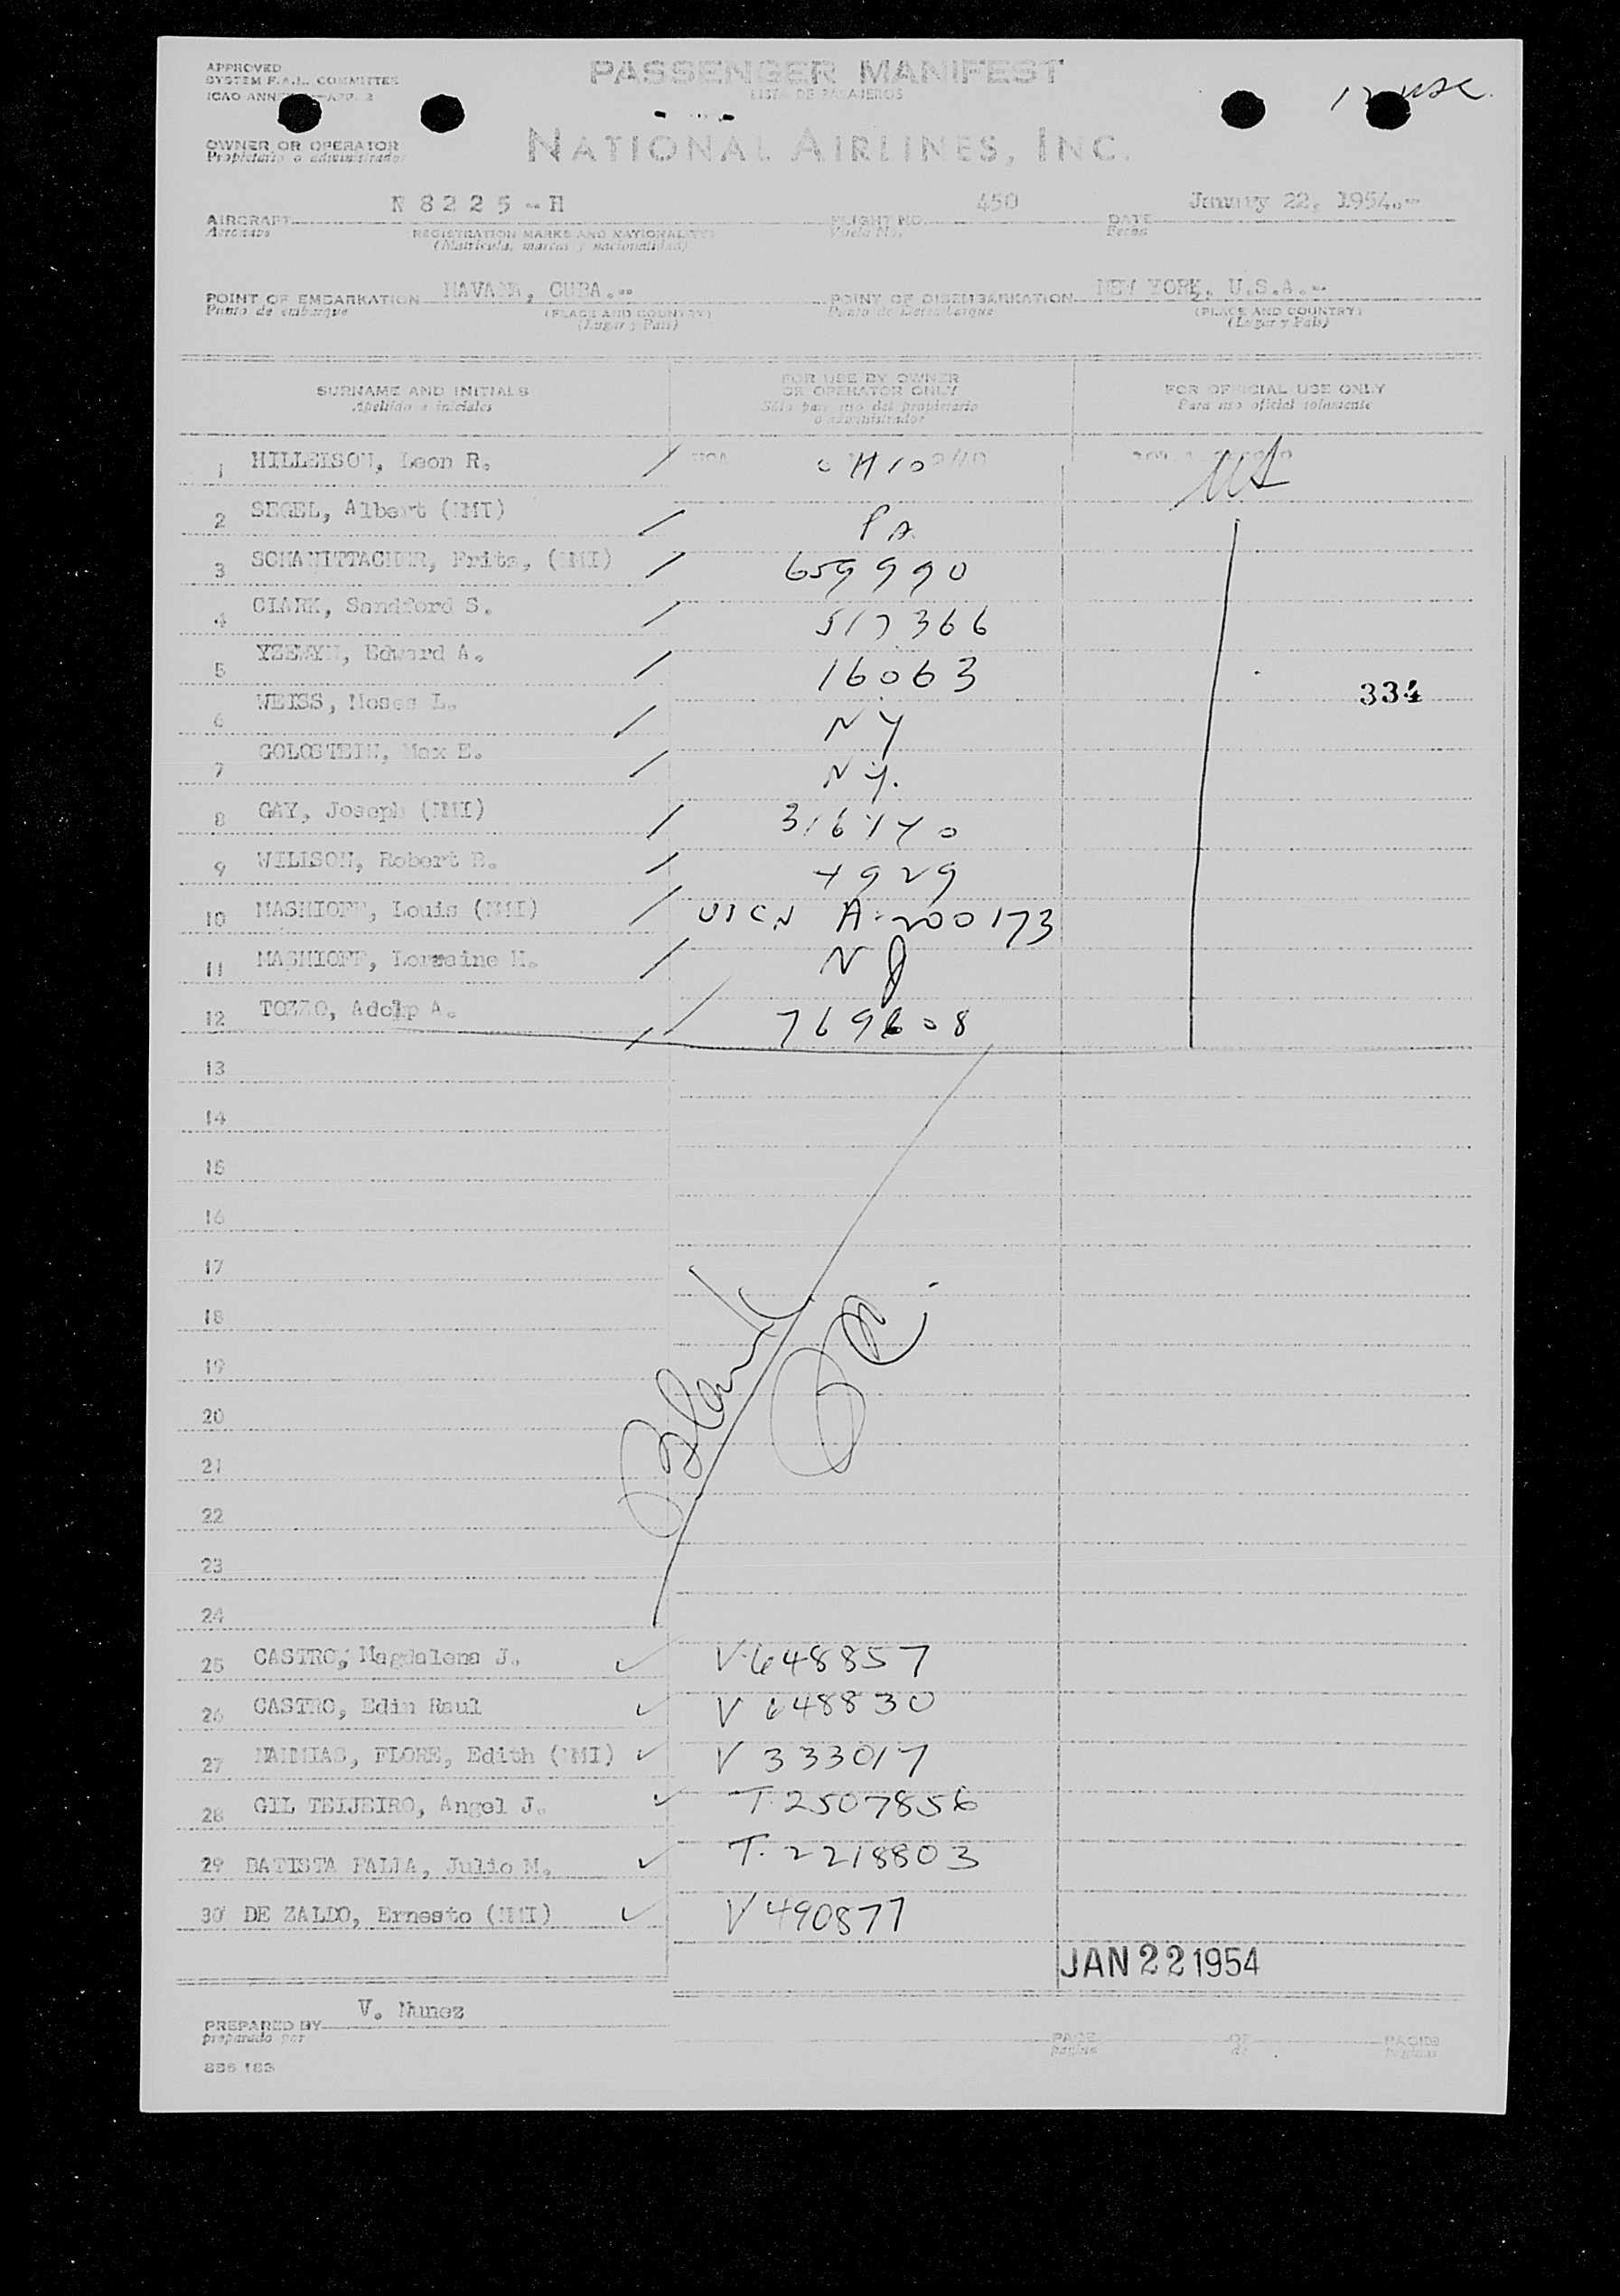 APPROVED
SYSTEM F.A.L. COMMITTEE
ICAO ANNEX APP. 2
PASSENGER MANIFEST
LISTA DE PASAJEROS
OWNER OR OPERATOR
Propietario o administrador
NATIONAL AIRLINES, INC.
AIRCRAFT N 8 2 2 5 -- H FLIGHT NO. 450 DATE January 22, 1954.--
Aeronave REGISTRATION MARKS AND NATIONALITY Vuelo No. Fecha
(Matricula, marcas y nacionalidad)
POINT OF EMBARKATION HAVANA, CUBA.-- POINT OF DISEMBARKATION NEW YORK, U.S.A.--
Punto de embarque (PLACE AND COUNTRY) Punto de Desembarque (PLACE AND COUNTRY)
(Lugar y Pais) (Lugar y Pais)
SURNAME AND INITIALS FOR USE BY OWNER OR OPERATOR ONLY FOR OFFICIAL USE ONLY
Apellido e iniciales Sólo para uso del propietario o administrador Para uso oficial solamente
1 HILLEISON, Leon R. / OHIO US
2 SEGEL, Albert (NMI) / PA
3 Fritz, (NMI) / 659990
4 CLARK, Sandford S. / 517366
5 Edward A. / 16063
334
6 WEISS, Moses L. / NY
7 GOLOSTEIN, Max E. / NY.
8 GAY, Joseph (NMI) /
9 WILLSON, Robert / 4929
10 MASHIOFF, Louis (NMI) / A-200173
11 MASHIOFF, Lorraine H. / NJ
12 TOZZO, Adolp A. / 769608
13
14
15
16
17
18
19
20
21
22
23
24
Blank
25 CASTRO, Magdalena J. ✓ V-648857
26 CASTRO, Edin Raul ✓ V 648830
27 NAHMIAS, FLORE, Edith (NMI) ✓ V 333017
28 GIL TEIJEIRO, Angel J. ✓ T. 2507856
29 BATISTA FALLA, Julio M. ✓ T. 2218803
30 DE ZALDO, Ernesto (NMI) ✓ V 490877
JAN 22 1954
PREPARED BY V. Nunez
preparado por
PAGE OF PAGES
pagina de paginas